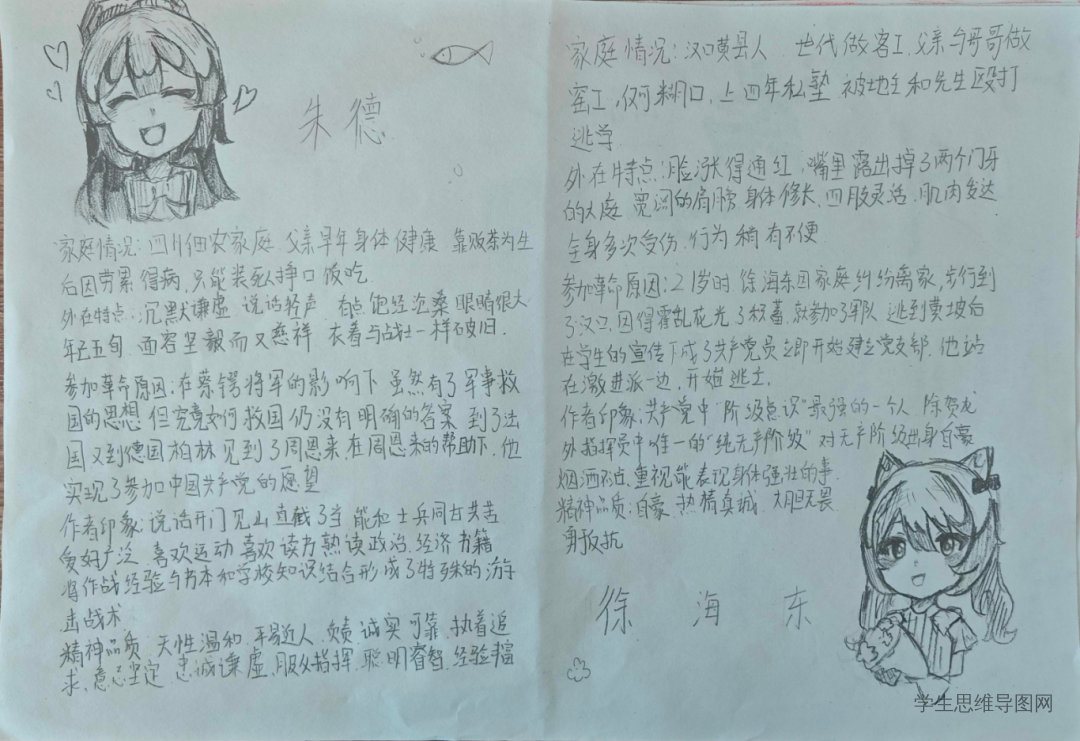 朱德
家庭情况：四川佃农家庭 父亲早年身体健康 靠贩茶为生
后因劳累得病，只能装死人挣口饭吃
外在特点：沉默谦虚 说话轻声 有点饱经沧桑 眼睛很大
年已五旬 面容坚毅而又慈祥 衣着与战士一样破旧.
参加革命原因：在蔡锷将军的影响下 虽然有了军事救
国的思想 但究竟如何救国仍没有明确的答案 到了法
国又到德国柏林 见到了周恩来，在周恩来的帮助下，他
实现了参加中国共产党的愿望
作者印象：说话开门见山 直截了当 能和士兵同甘共苦
爱好广泛 喜欢运动 喜欢读书 熟读政治、经济书籍
将作战经验与书本和学校知识结合形成了特殊的游
击战术
精神品质：天性温和 平易近人、负责 诚实可靠、执着追
求、意志坚定 忠诚谦虚、服从指挥、聪明睿智、经验丰富
家庭情况：汉口黄县人 世代做窑工，父亲与哥哥做
窑工，仅可糊口，上四年私塾 被地主和先生殴打
逃学
外在特点：脸涨得通红，嘴里露出掉了两个门牙
的大庭 宽阔的肩膀 身体修长、四肢灵活、肌肉发达
全身多次受伤，行为稍有不便
参加革命原因：21岁时 徐海东因家庭纠纷离家，步行到
了汉口，因得霍乱花光了积蓄，就参加了军队 逃到黄坡后
在学生的宣传下成了共产党员 立即开始建立党支部，他站
在激进派一边，开始逃亡.
作者印象：共产党中“阶级意识”最强的一个人 除贺龙
外指挥员中唯一的“纯无产阶级” 对无产阶级出身自豪
烟酒不沾，重视能表现身体强壮的事.
精神品质：自豪、热情真诚、大胆无畏
勇于反抗
徐海东
学生思维导图网